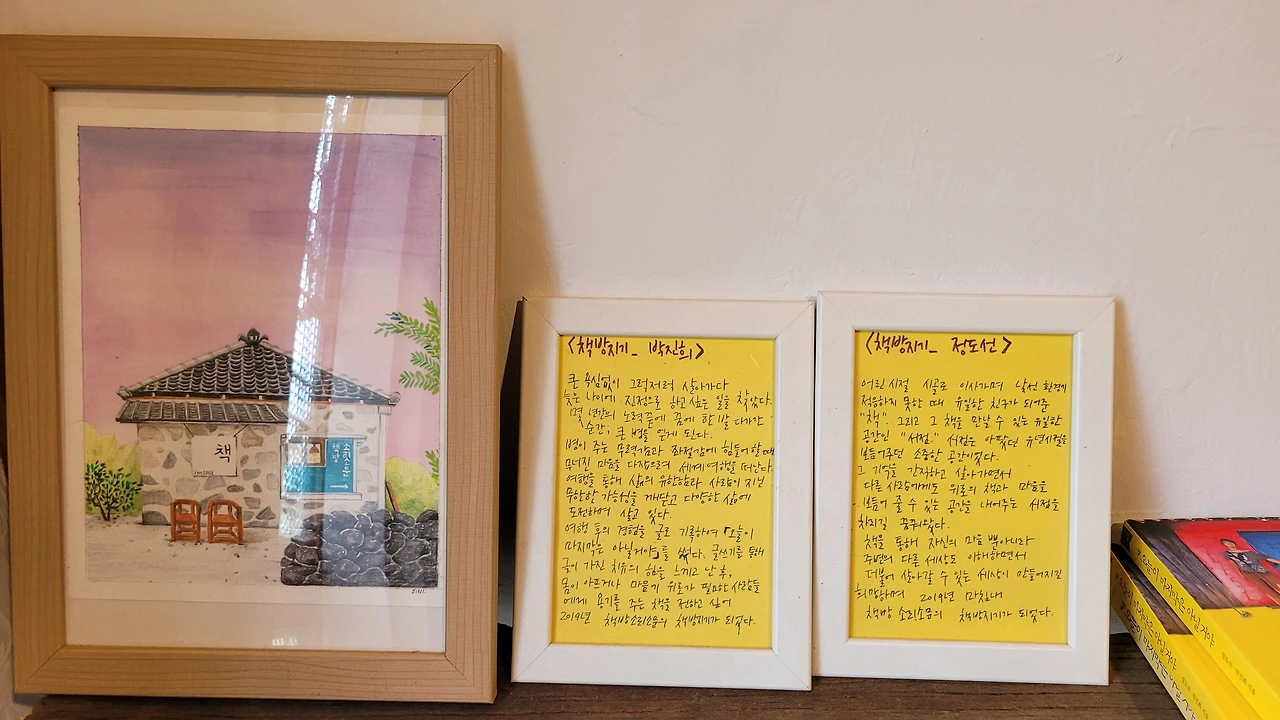 책
책방
소리소문
JINI.
<책방지기_ 박진희>
큰 욕심없이 그럭저럭 살아가다
늦은 나이에 진정으로 하고 싶은 일을 찾았다.
몇 년간의 노력끝에 꿈에 한 발 다가간
순간, 큰 병을 얻게 된다.
병이 주는 무력감과 좌절감에 힘들어할 때
무너진 마음을 다잡으려 세계여행을 떠난다.
여행을 통해 삶의 유한함과 사람이 지닌
무한한 가능성을 깨닫고 다양한 삶에
도전하며 살고 있다.
여행 후의 경험을 글로 기록하여 「오늘이
마지막은 아닐거야」를 썼다. 글쓰기를 통해
글이 가진 치유의 힘을 느끼고 난 후,
몸이 아프거나 마음의 위로가 필요한 사람들
에게 용기를 주는 책을 전하고 싶어
2019년 책방소리소문의 책방지기가 되었다.
<책방지기_ 정도선>
어린시절 시골로 이사가며 낯선 환경에
적응하지 못한 때 유일한 친구가 되어준
"책". 그리고 그 책을 만날 수 있는 유일한
공간인 "서점." 서점은 아팠던 유년시절을
보듬어주던 소중한 공간이었다.
그 기억을 간직하고 살아가면서
다른 사람에게도 위로의 책과 마음을
보듬어 줄 수 있는 공간을 내어주는 서점을
차리길 꿈꿔왔다.
책을 통해 자신의 마음 뿐아니라
주변의 다른 세상도 이해하면서
더불어 살아갈 수 있는 세상이 만들어지길
희망하며 2019년 마침내
책방 소리소문의 책방지기가 되었다.
오늘이 마지막은 아닐거야